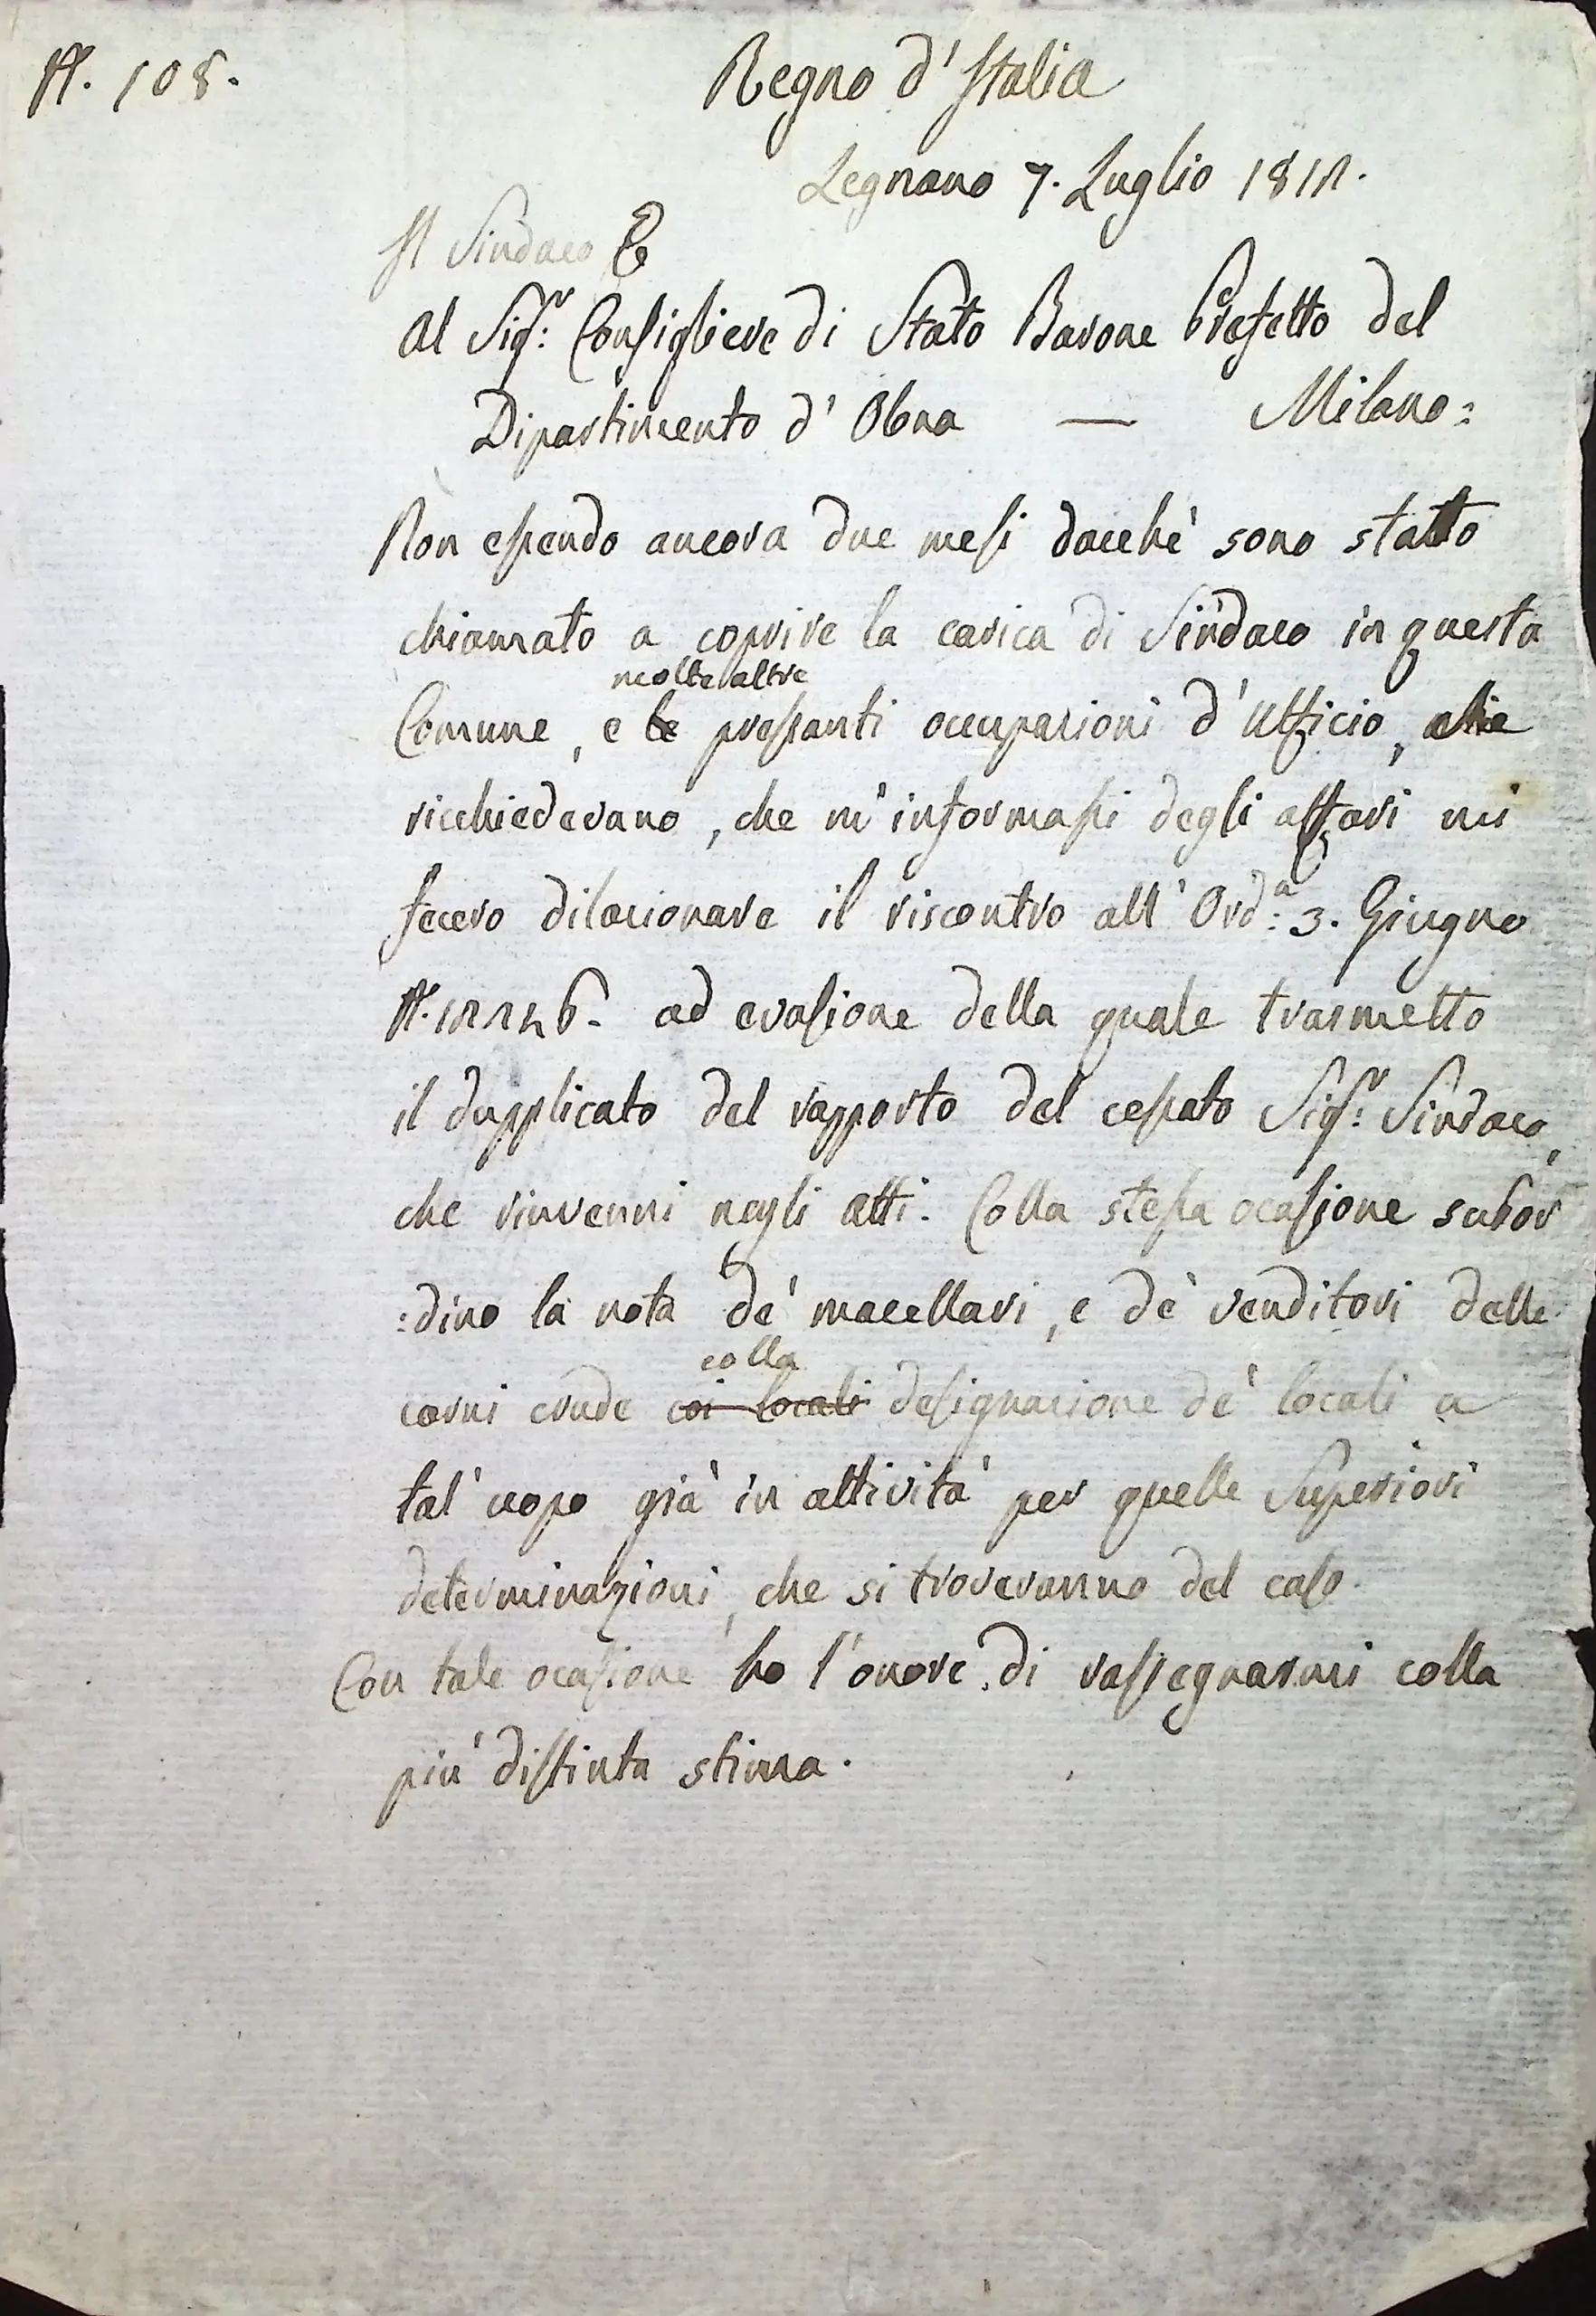 N. 108.
Regno d'Italia
Legnano 7. Luglio 1812.
Il Sindaco
Al Sig.r Consigliere di Stato Barone Prefetto del
Dipartimento d'Olona — Milano:
Non essendo ancora due mesi dacchè sono statto
chiamato a coprire la carica di Sindaco in questa
molte altre
Comune, e le pressanti occupazioni d'Ufficio, che
ricchiedevano, che m'informassi degli affari mi
fecero dilazionare il riscontro all'Ord.a 3. Giugno
ad evasione della quale trasmetto
il dupplicato del rapporto del cessato Sig.r Sindaco,
che rinvenni negli atti. Colla stessa ocasione subor
:dino la nota de' macellari, e de' venditori delle
colla
carni crude coi locali designazione de' locali a
tal'uopo già in attività per quelle Superiori
determinazioni, che si troveranno del caso.
Con tale ocasione ho l'onore di rassegnarmi colla
più distinta stima.